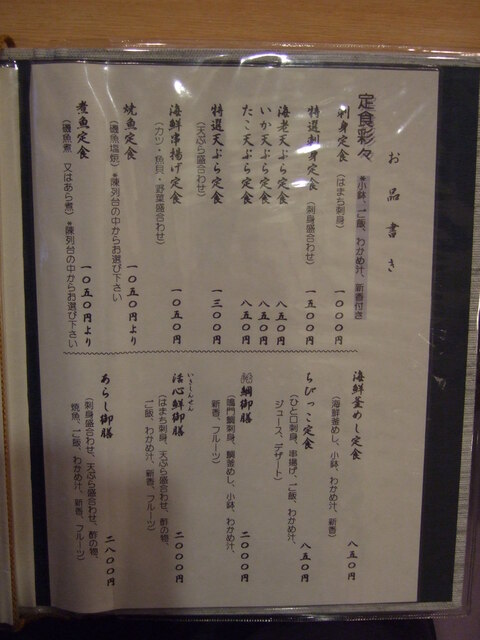 お品書き
定食彩々
＊小鉢、ご飯、わかめ汁、新香付き
刺身定食
（はまち刺身）
一〇〇〇円
特選刺身定食
（刺身盛合わせ）
一五〇〇円
海老天ぷら定食
八五〇円
いか天ぷら定食
八五〇円
たこ天ぷら定食
八五〇円
特選天ぷら定食
（天ぷら盛合わせ）
一三〇〇円
海鮮串揚げ定食
（カツ・魚貝・野菜盛合わせ）
一〇五〇円
焼魚定食
（磯魚塩焼）＊陳列台の中からお選び下さい
一〇五〇円より
煮魚定食
（磯魚煮 又はあら煮）＊陳列台の中からお選び下さい
一〇五〇円より
海鮮釜めし定食
（海鮮釜めし、小鉢、わかめ汁、新香）
八五〇円
ちびっこ定食
（ひと口刺身、串揚げ、ご飯、わかめ汁、
ジュース、デザート）
八五〇円
鯛御膳
（鳴門鯛刺身、鯛釜めし、小鉢、わかめ汁、
新香、フルーツ）
二〇〇〇円
いきしんせん
活心鮮御膳
（はまち刺身、天ぷら盛合わせ、酢の物、
ご飯、わかめ汁、新香、フルーツ）
二〇〇〇円
あらし御膳
（刺身盛合わせ、天ぷら盛合わせ、酢の物、
焼魚、ご飯、わかめ汁、新香、フルーツ）
二八〇〇円